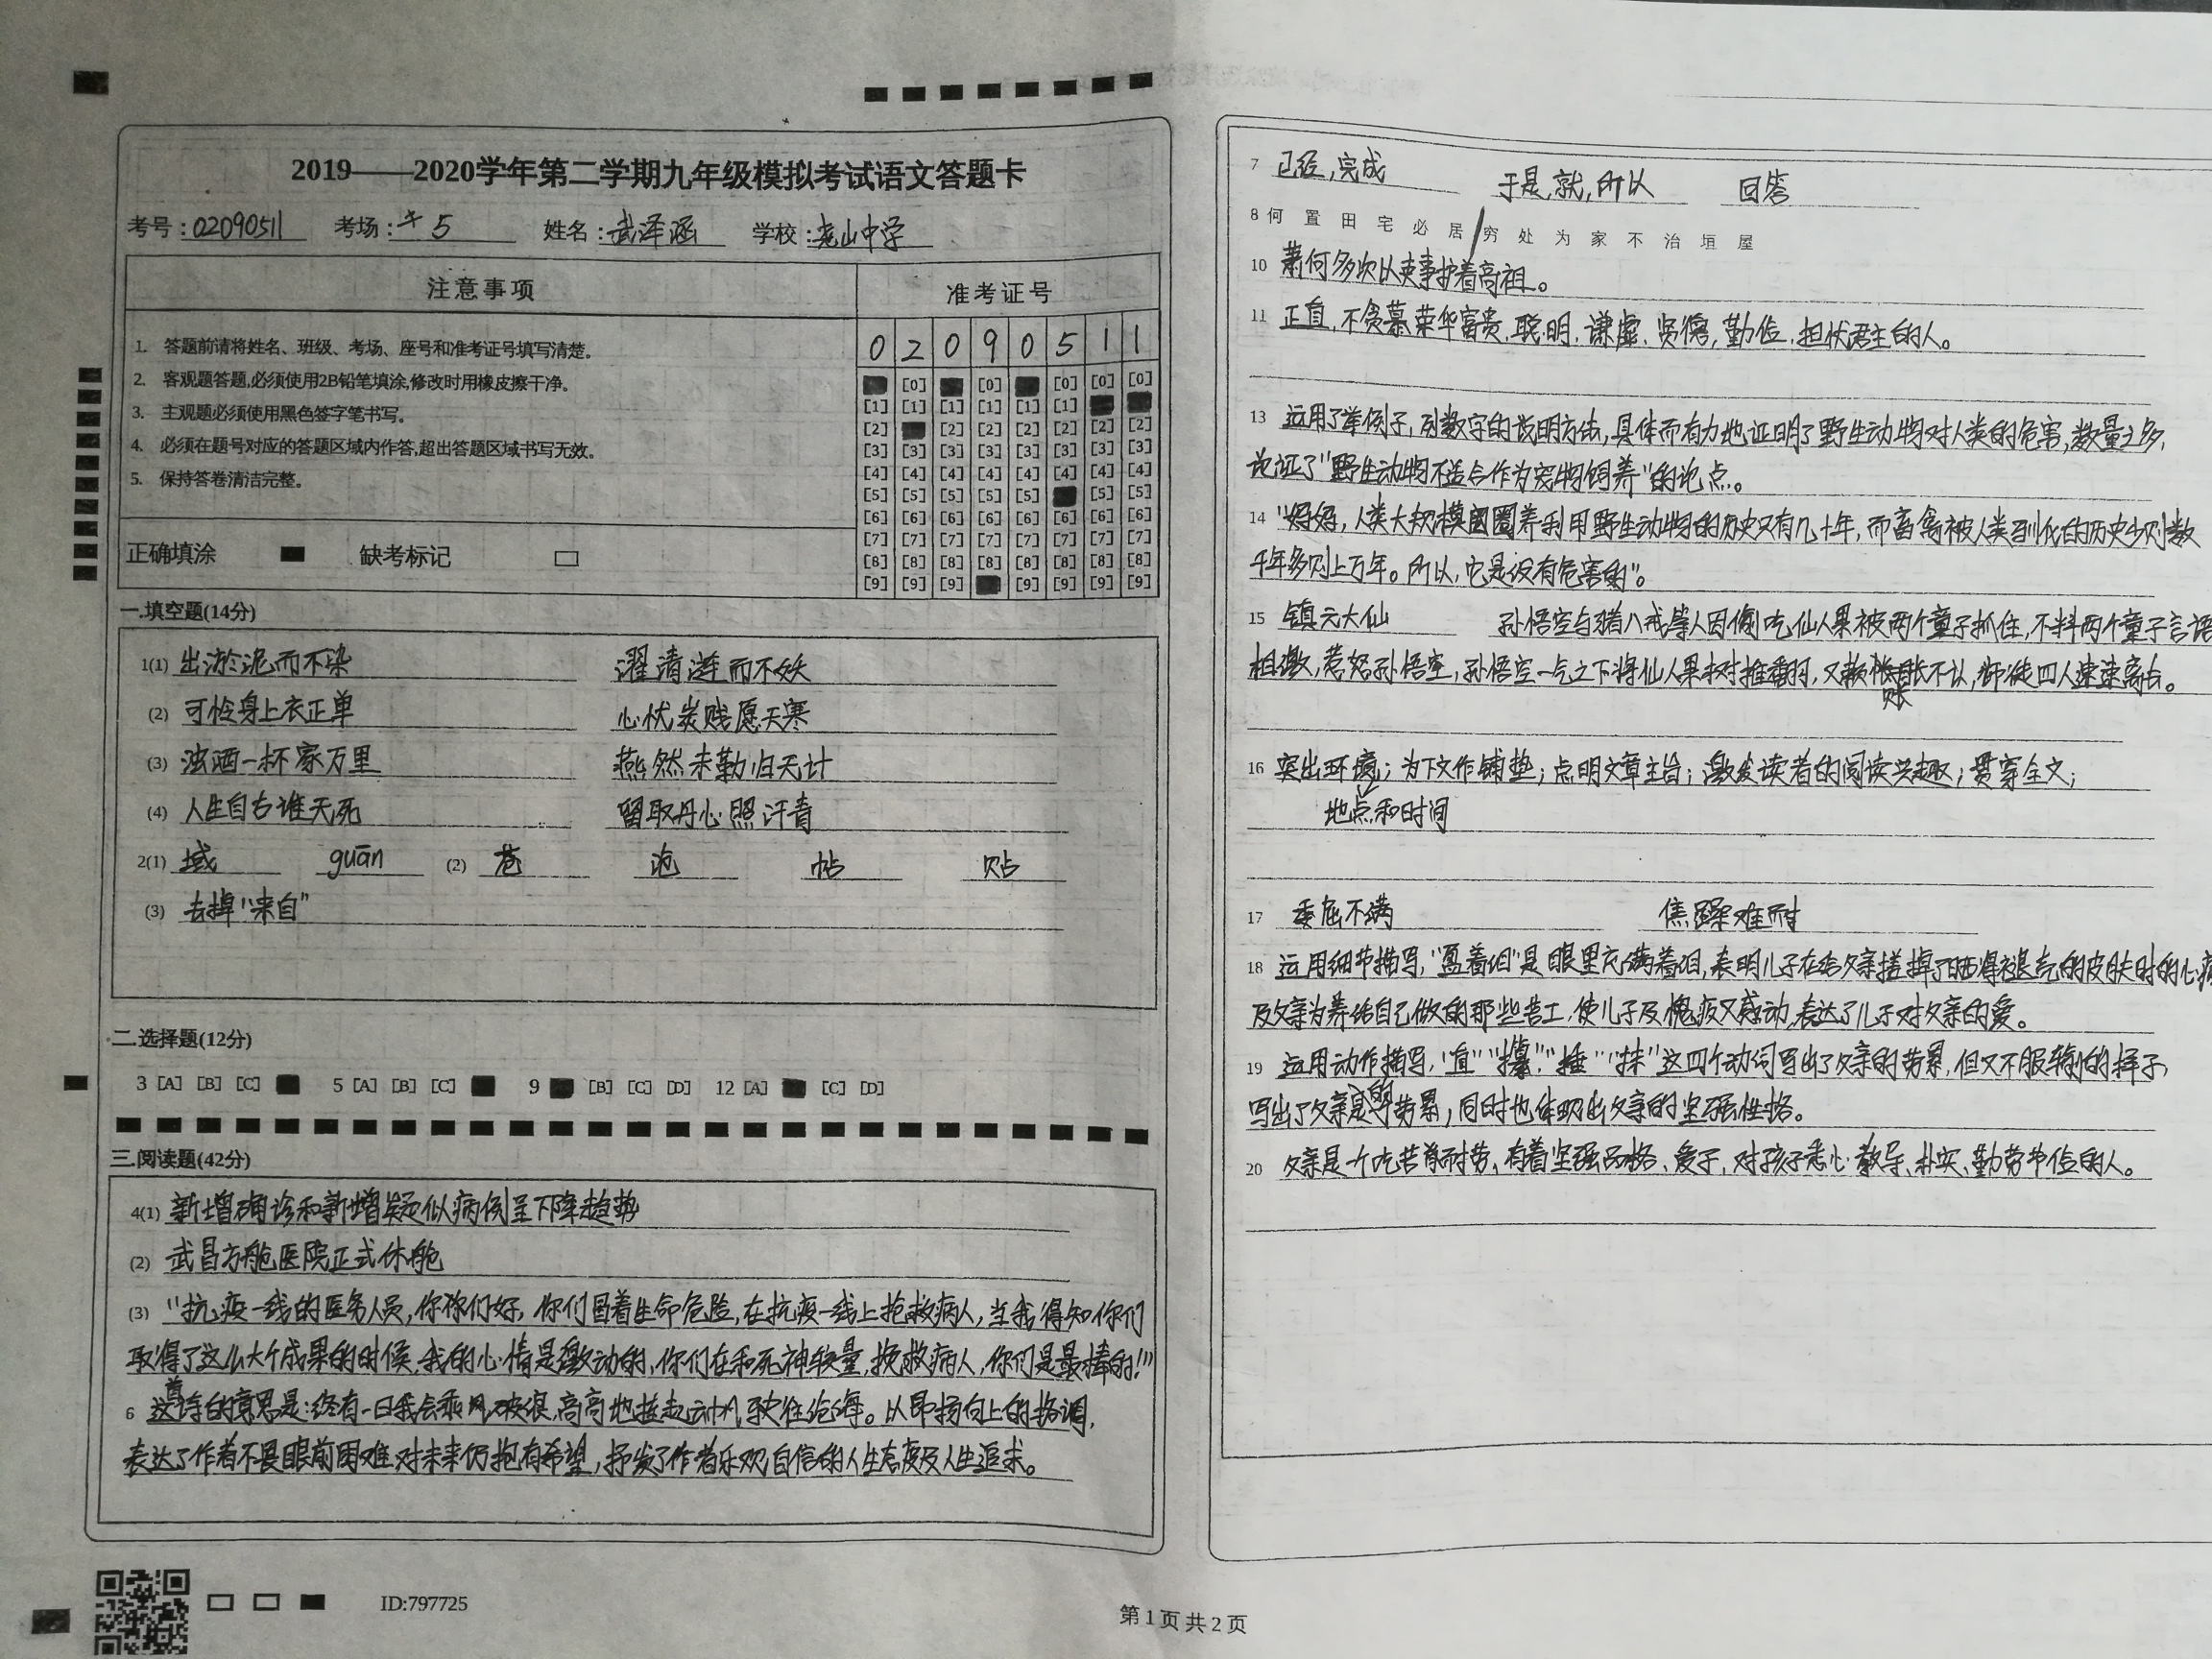 2019——2020学年第二学期九年级模拟考试语文答题卡
考号:02090511 考场:5 姓名:武泽涵 学校:尧山中学
注意事项
准考证号
0 2 0 9 0 5 1 1
1. 答题前请将姓名、班级、考场、座号和准考证号填写清楚。
2. 客观题答题,必须使用2B铅笔填涂,修改时用橡皮擦干净。
3. 主观题必须使用黑色签字笔书写。
4. 必须在题号对应的答题区域内作答,超出答题区域书写无效。
5. 保持答卷清洁完整。
正确填涂 缺考标记
[0] [0] [0] [0] [0]
[1] [1] [1] [1] [1] [1]
[2] [2] [2] [2] [2] [2] [2]
[3] [3] [3] [3] [3] [3] [3] [3]
[4] [4] [4] [4] [4] [4] [4] [4]
[5] [5] [5] [5] [5] [5] [5]
[6] [6] [6] [6] [6] [6] [6] [6]
[7] [7] [7] [7] [7] [7] [7] [7]
[8] [8] [8] [8] [8] [8] [8] [8]
[9] [9] [9] [9] [9] [9] [9]
一.填空题(14分)
1(1) 出淤泥而不染 濯清涟而不妖
(2) 可怜身上衣正单 心忧炭贱愿天寒
(3) 浊酒一杯家万里 燕然未勒归无计
(4) 人生自古谁无死 留取丹心照汗青
2(1) 域 guān (2) 苍 沧 帖 贴
(3) 去掉“来自”
二.选择题(12分)
3 [A] [B] [C] 5 [A] [B] [C] 9 [B] [C] [D] 12 [A] [C] [D]
三.阅读题(42分)
4(1) 新增确诊和新增疑似病例呈下降趋势
(2) 武昌方舱医院正式休舱
(3) “抗疫一线的医务人员,你们好,你们冒着生命危险,在抗疫一线上抢救病人,当我得知你们
取得了这么大个成果的时候,我的心情是激动的,你们在和死神较量,挽救病人,你们是最棒的!”
6 这首诗的意思是:终有一日我会乘风破浪,高高地挂起云帆驶往沧海。以昂扬向上的格调,
表达了作者不畏眼前困难对未来仍抱有希望,抒发了作者乐观自信的人生态度及人生追求。
ID:797725
第 1 页 共 2 页
7 已经,完成 于是,就,所以 回答
8 何 置 田 宅 必 居 / 穷 处 为 家 不 治 垣 屋
10 萧何多次以吏事护着高祖。
11 正直,不贪慕荣华富贵,聪明,谦虚,贤德,勤俭,担忧君主的人。
13 运用了举例子,列数字的说明方法,具体而有力地证明了野生动物对人类的危害,数量之多,
论证了“野生动物不适合作为宠物饲养”的论点。
14 “妈妈,人类大规模圈养利用野生动物的历史只有几十年,而畜禽被人类驯化的历史少则数
千年多则上万年。所以,它是没有危害的”。
15 镇元大仙 孙悟空与猪八戒等人因偷吃仙人果被两个童子抓住,不料两个童子言语
相激,惹怒孙悟空,孙悟空一气之下将仙人果树推翻,又赖账不认,师徒四人速速离去。
16 突出环境;为下文作铺垫;点明文章主旨;激发读者的阅读兴趣;贯穿全文;
地点和时间
17 委屈不满 焦躁难耐
18 运用细节描写,“盈着泪”是眼里充满着泪,表明儿子在给父亲搓掉了晒得褪壳的皮肤时的心痛
及父亲为养活自己做的那些苦工,使儿子及愧疚又感动,表达了儿子对父亲的爱。
19 运用动作描写,“直”“攥”“捶”“抹”这四个动词写出了父亲的劳累,但又不服输的样子,
写出了父亲的劳累,同时也体现出父亲的坚强性格。
20 父亲是一个吃苦耐劳、有着坚强品格、爱子,对孩子悉心教导、朴实、勤劳节俭的人。